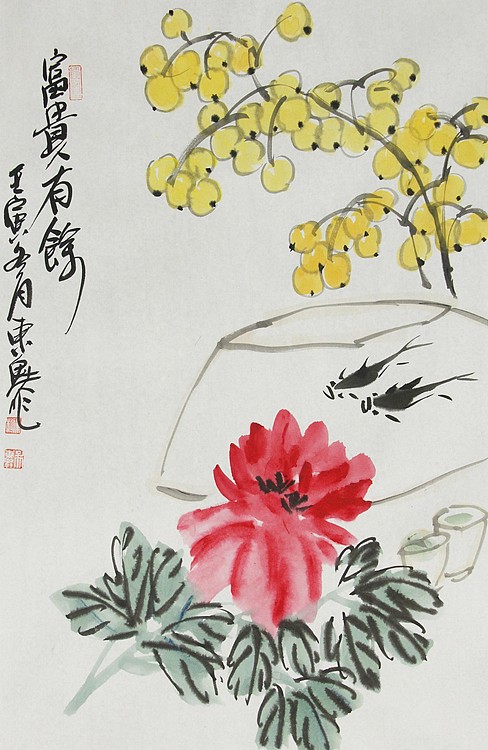 富貴有餘
壬寅冬月東作